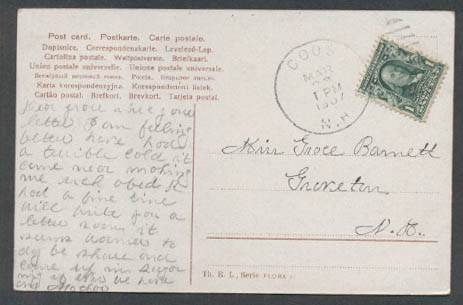 Post card. Postkarte. Carte postale.
Dopisnice. Correspondenzkarte. Levelező-Lap.
Cartolina postale. Weltpostverein. Briefkaart.
Union postale universelle. Unione postale universale.
Karta korespondencyjna. Korespondenční lístek.
Cartão postal. Brefkort. Brevkort. Tarjeta postal.
COOS
MAR
1 PM
1907
N.H.
Miss Grace Barnett
Groveton
N.H.
Dear grace
letter I am feling
better here had
a terible cold it
come near making
me sick abed
had a fine time
will write you a
letter soon it
seems warmer to
day be shure and
come up
Th. E. L., Serie FLORA